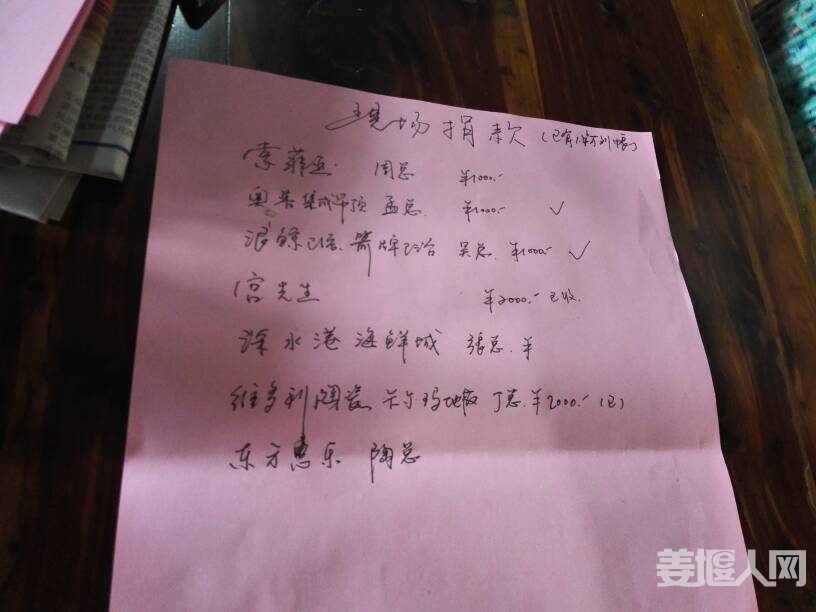 现场捐款
索菲亚 周总 ¥1000.-
奥普集成吊顶 孟总. ¥1000.- ✓
浪鲸卫浴. 箭牌 吴总. ¥1000.- ✓
宫先生 ¥2000.- 已收.
深水港海鲜城 張总. ¥
维多利陶瓷 卡尔玛地板 丁总. ¥2000.- (已)
东方惠乐 陶总
姜堰人网